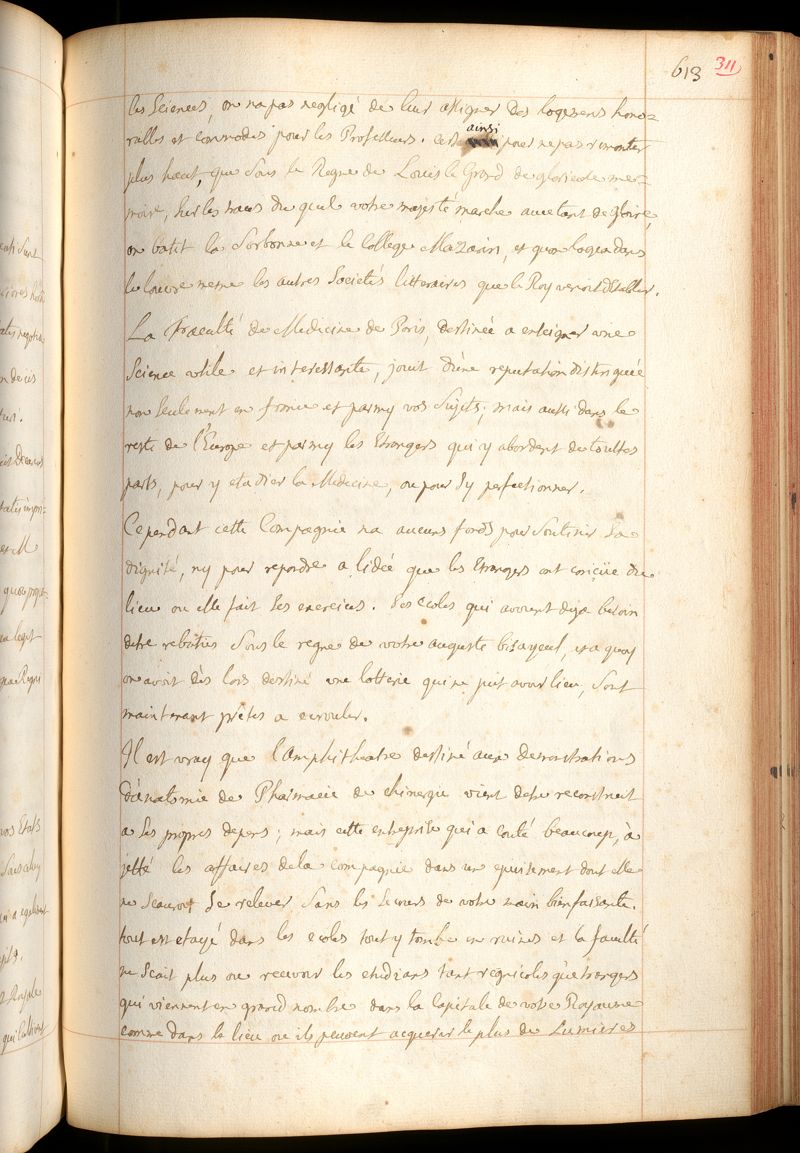 613 311
les Sciences, on na pas negligé de leur assigner Des logemens hono=
rables et commodes pour les Professeurs. cest ainsi pour ne pas remonter
plus haut, que Sous le Regne de Louis le Grand de glorieuse me=
moire, Sur les traces Du quel votre majesté marche avec tant de gloire,
on batit la Sorbonne et le College Mazarin, et qu'on logea dans
le louvre meme les autres Societés litteraires que le Roy venoit d'Etablir.
La Faculté de Medicine de Paris, destinée a enseigner une
Science utile et interessante, jouit d'une reputation distinguée
non seulement en france et parmy vos Sujets; mais aussi dans le
reste de l'Europe et parmy les Etrangers qui y abordent de touttes
parts, pour y etudier la Medicine, ou pour Sy perfectionner.
Cependant cette Compagnie na aucuns fonds pour Soutenir Sa
dignité, ny pour repondre a lidée que les Etrangers ont conçüe du
lieu ou elle fait Ses exercices. Ses ecoles qui avoient deja besoin
detre rebaties Sous le regne de votre auguste bisayeul, et a quoy
on avoit dès lors destiné une lotterie qui ne put avoir lieu, Sont
maintenant prêtes a ecrouler.
Il est vray que l'amphitheatre destiné aux demonstrations
d'anatomie de Pharmacie de chirurgie vient detre reconstruit
a Ses propres depens; mais cette entreprise qui a couté beaucoup, à
jetté les affaires dela compagnie dans un epuisement dont elle
ne Scauroit Se relever Sans les Secours de votre main bienfaisante.
tout est etayé dans les ecoles tout y tombe en ruines et la faculté
ne Scait plus ou recevoir les etudians tant regnicoles qu'etrangers
qui viennent en grand nombre dans la Capitale de votre Royaume
comme dans le lieu ou ils peuvent acquerir le plus de Lumieres